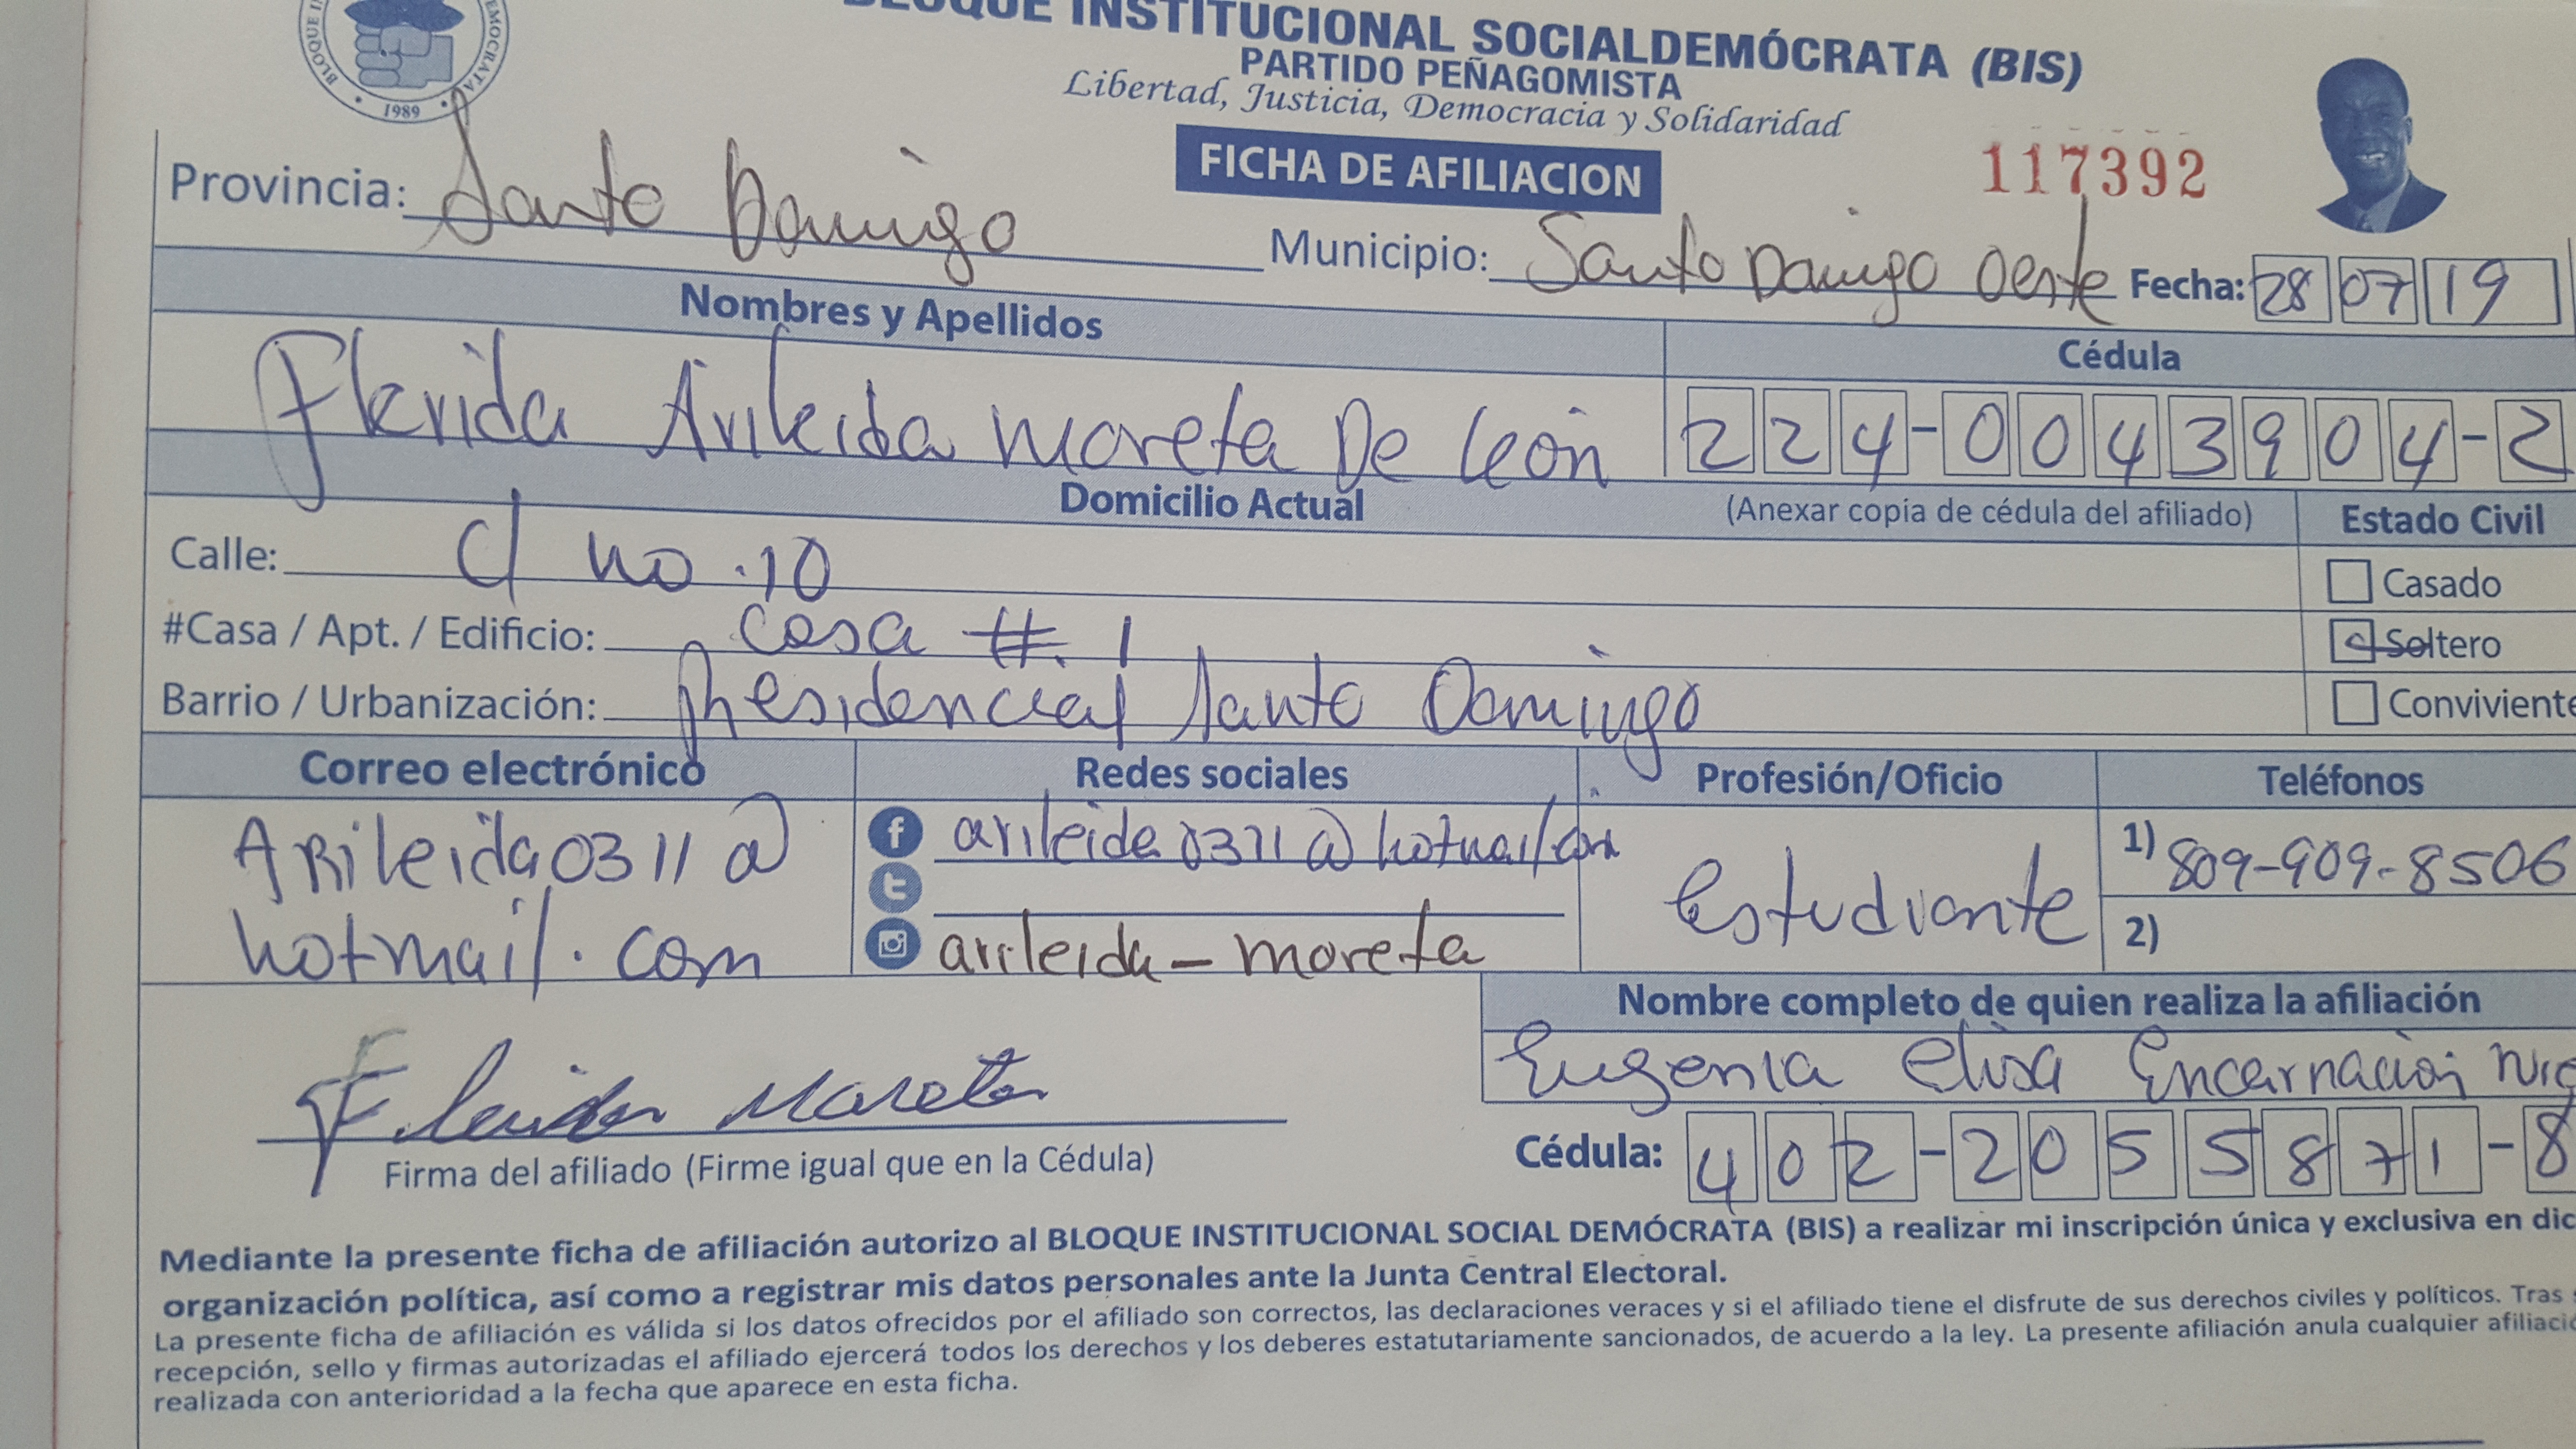 BLOQUE INSTITUCIONAL SOCIALDEMÓCRATA (BIS)
PARTIDO PEÑAGOMISTA
Libertad, Justicia, Democracia y Solidaridad
1989
FICHA DE AFILIACION
117392
Provincia: Santo Domingo
Municipio: Santo Domingo Oeste Fecha: 28 07 19
Nombres y Apellidos
Cédula
Flerida Arileida Moreta De León
224-0043904-2
Domicilio Actual
(Anexar copia de cédula del afiliado)
Estado Civil
Calle: C/ no. 10
Casado
#Casa / Apt. / Edificio: Casa #. 1
Soltero
Barrio / Urbanización: Residencial Santo Domingo
Conviviente
Correo electrónico
Redes sociales
Profesión/Oficio
Teléfonos
ARileida0311@
hotmail.com
arileida0311@hotmail.com
arileida-moreta
Estudiante
1) 809-909-8506
2)
Nombre completo de quien realiza la afiliación
Eugenia Elisa Encarnación
Flerida Moreta
Firma del afiliado (Firme igual que en la Cédula)
Cédula: 402-2055871-8
Mediante la presente ficha de afiliación autorizo al BLOQUE INSTITUCIONAL SOCIAL DEMÓCRATA (BIS) a realizar mi inscripción única y exclusiva en dic
organización política, así como a registrar mis datos personales ante la Junta Central Electoral.
La presente ficha de afiliación es válida si los datos ofrecidos por el afiliado son correctos, las declaraciones veraces y si el afiliado tiene el disfrute de sus derechos civiles y políticos. Tras
recepción, sello y firmas autorizadas el afiliado ejercerá todos los derechos y los deberes estatutariamente sancionados, de acuerdo a la ley. La presente afiliación anula cualquier afiliació
realizada con anterioridad a la fecha que aparece en esta ficha.